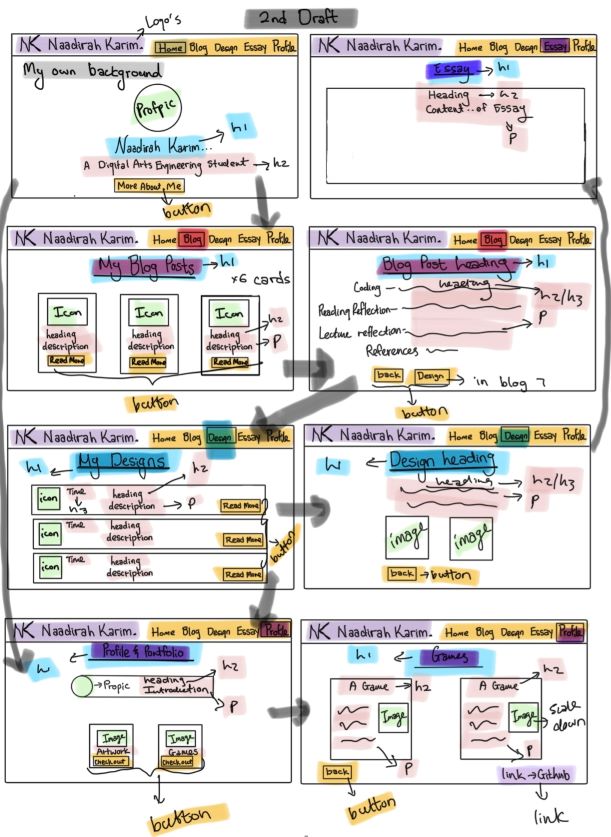 2nd Draft
Logo's
NK Naadirah Karim. Home Blog Design Essay Profile
My own background
Profpic
Naadirah Karim... h1
A Digital Arts Engineering Student h2
More About Me
button
NK Naadirah Karim. Home Blog Design Essay Profile
Essay h1
Heading h2
Content...of Essay
P
NK Naadirah Karim. Home Blog Design Essay Profile
My Blog Posts h1
x6 cards
Icon Icon Icon
heading heading heading h2
description description description P
Read More Read More Read More
button
NK Naadirah Karim. Home Blog Design Essay Profile
Blog Post heading h1
Coding heading h2/h3
Reading Reflection
Lecture reflection P
References
back Design in blog 7
button
NK Naadirah Karim. Home Blog Design Essay Profile
h1 My Designs h2
icon Time heading
h3 description P Read More
icon Time heading
description Read More
button
icon Time heading
description Read More
NK Naadirah Karim. Home Blog Design Essay Profile
h1 Design heading
heading h2/h3
P
image image
back button
NK Naadirah Karim. Home Blog Design Essay Profile
h1 Profile & Portfolio h2
Propic heading
Introduction
P
Image Image
Artwork Games
Checkout Checkout
button
NK Naadirah Karim. Home Blog Design Essay Profile
h1 Games h2
A Game h2 A Game
Image Image scale
down
P P
back link Github
button link